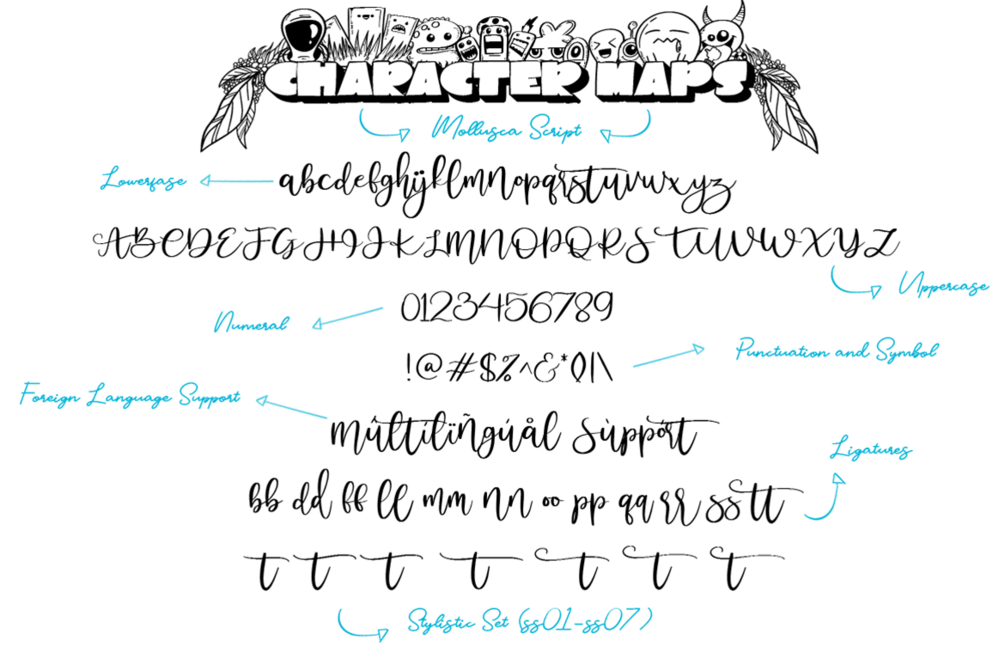 CHARACTER MAPS
Mollusca Script
Lowerfase
abcdefghijklmnopqrstuvwxyz
ABCDEFGHIJKLMNOPQRSTUVWXYZ
Uppercase
Numeral
0123456789
!@#$%^&*()|\
Punctuation and Symbol
Foreign Language Support
Múltilïñgúål Sùppórt
Ligatures
bb dd ff ll mm nn oo pp qq rr ss tt
t t t t t t t
Stylistic Set (ss01-ss07)